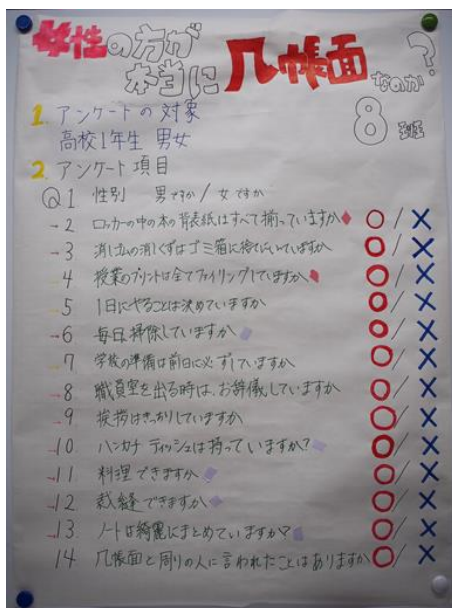 女性の方が
本当に几帳面なのか?
8班
1. アンケートの対象
高校1年生 男女
2. アンケート項目
Q1 性別 男ですか / 女ですか
-2 ロッカーの中の本の背表紙はすべて揃っていますか ○/×
-3 消しゴムの消しくずはゴミ箱に捨てにいっていますか ○/×
-4 授業のプリントは全てファイリングしていますか ○/×
-5 1日にやることは決めていますか ○/×
-6 毎日掃除していますか ○/×
-7 学校の準備は前日に必ずしていますか ○/×
-8 職員室を出る時は、お辞儀していますか ○/×
-9 挨拶はきっちりしていますか ○/×
-10 ハンカチ ティッシュは持っていますか? ○/×
-11 料理できますか ○/×
-12 裁縫できますか ○/×
-13 ノートは綺麗にまとめていますか? ○/×
14 几帳面と周りの人に言われたことはありますか ○/×